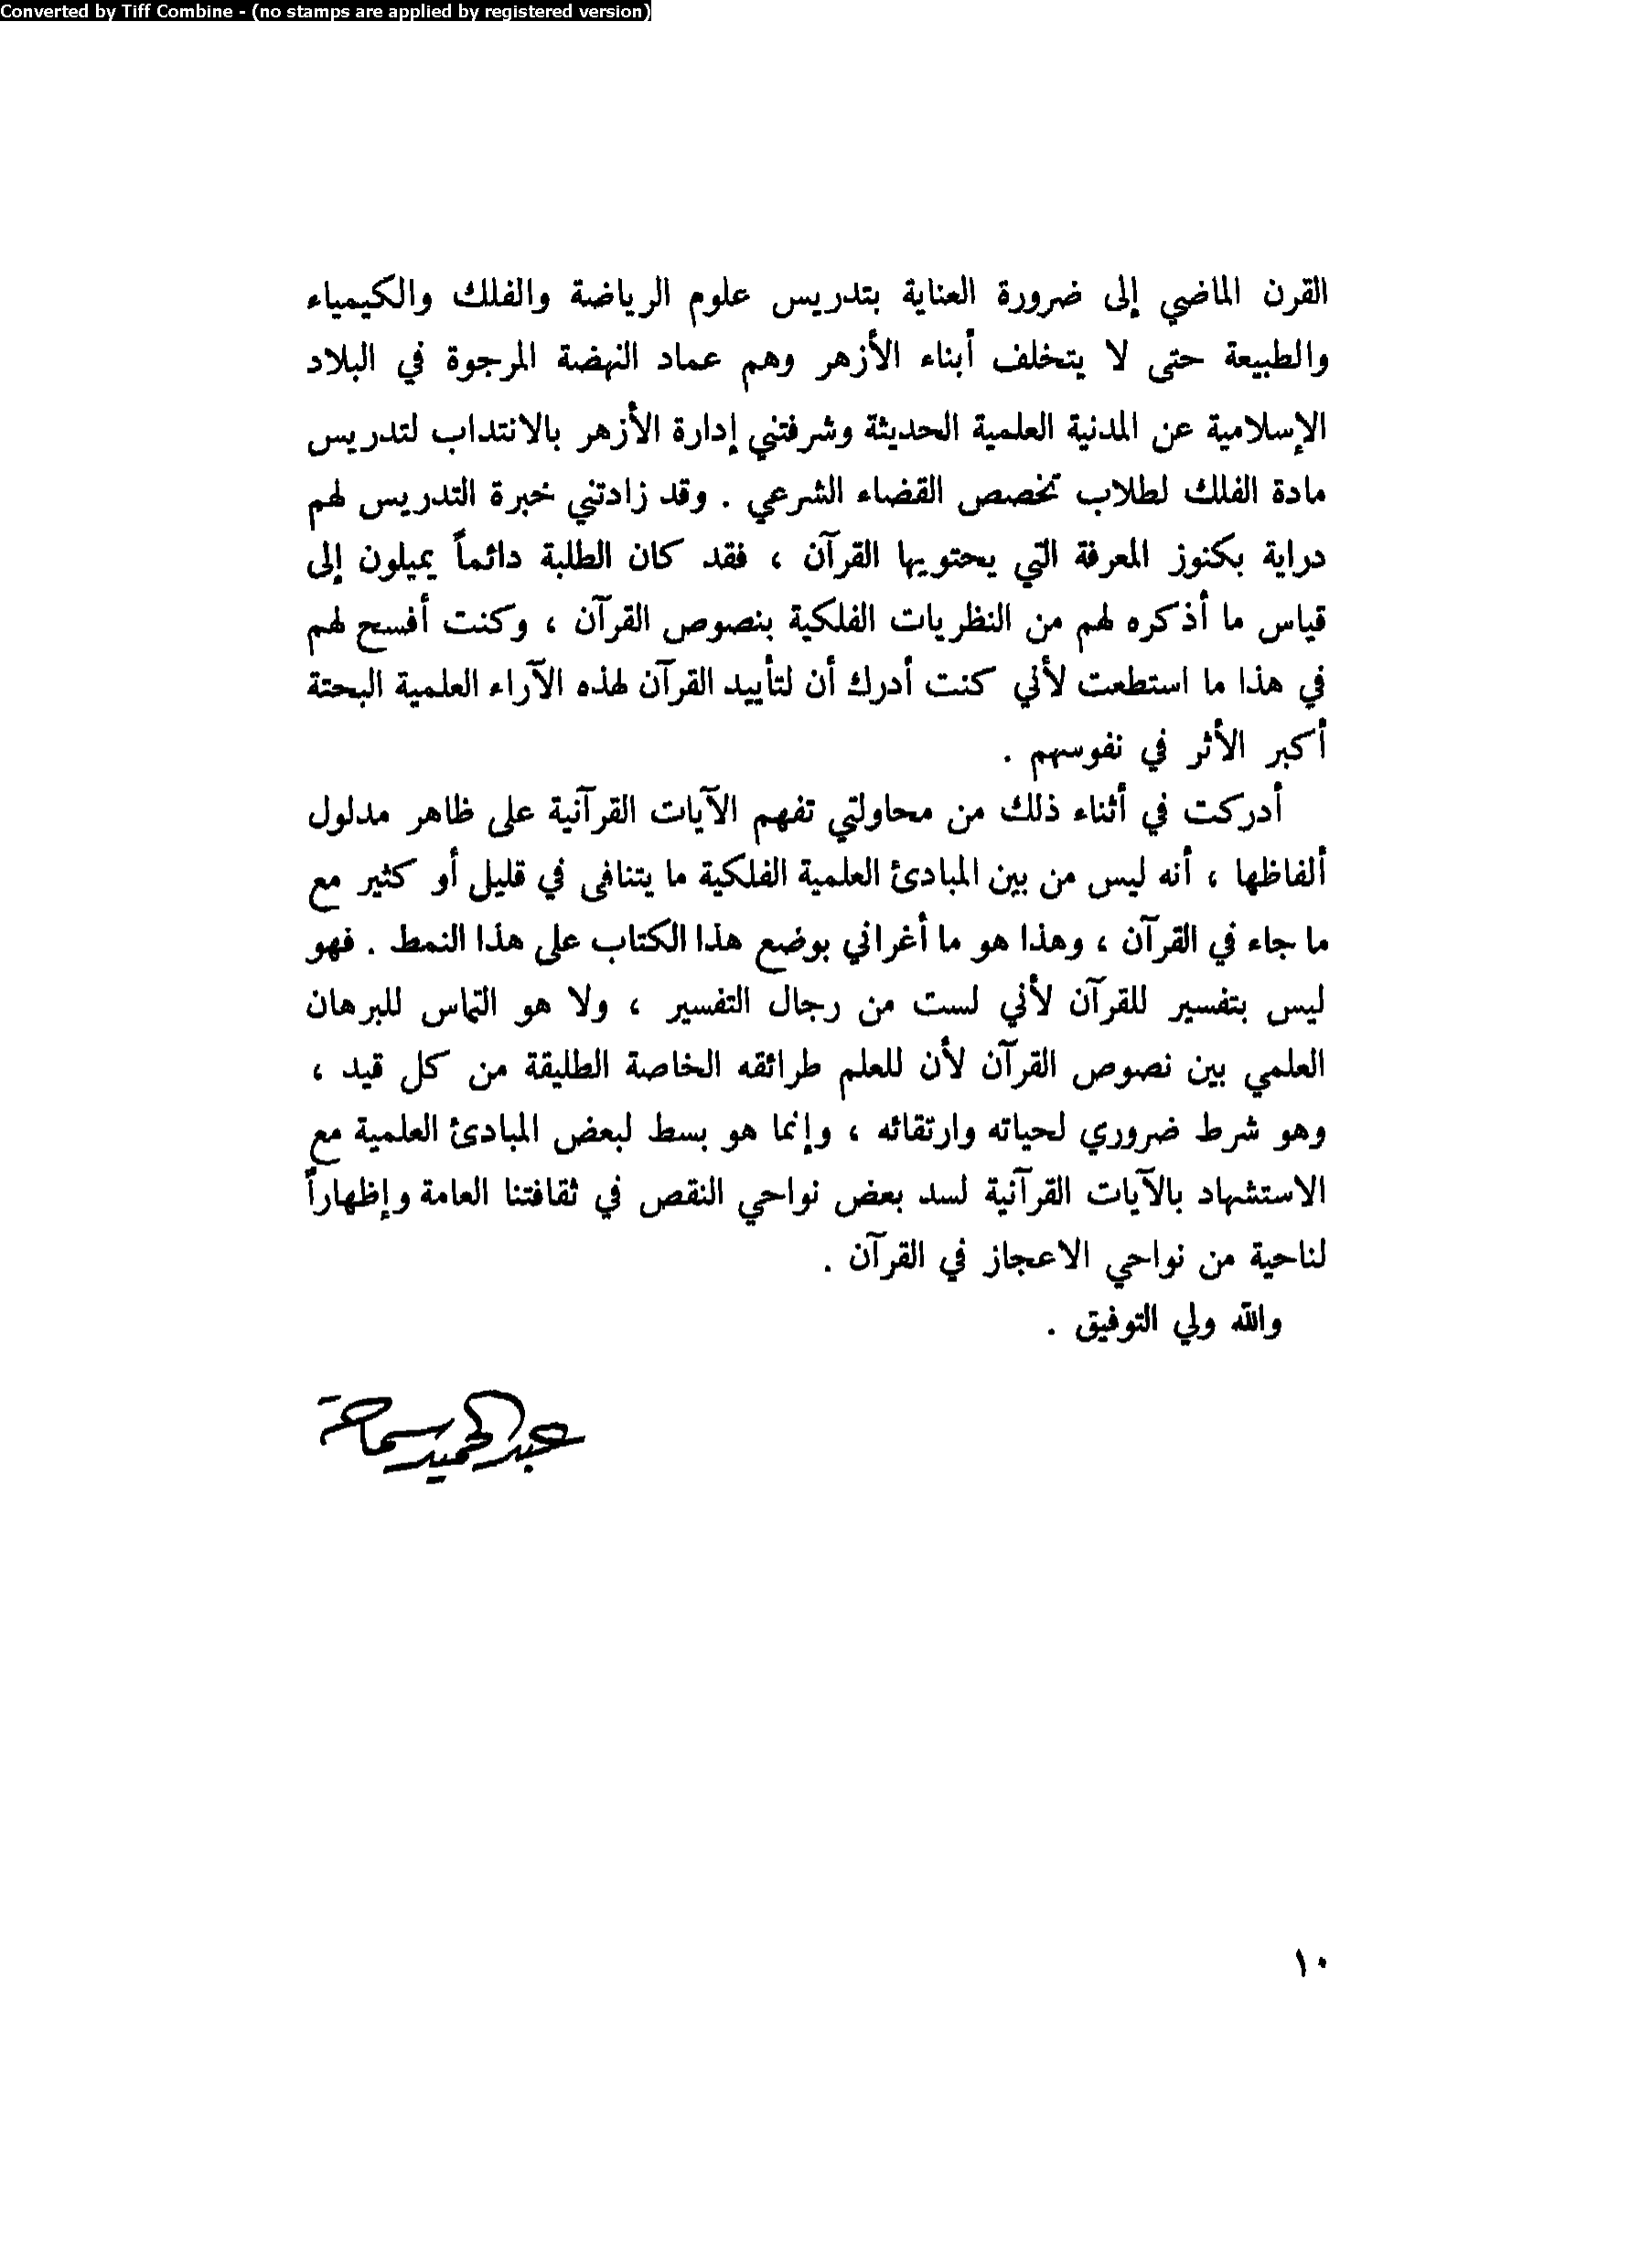 Converted by Tiff Combine - (no stamps are applied by registered version)
القرن الماضي إلى ضرورة العناية بتدريس علوم الرياضة والفلك والكيمياء
والطبيعة حتى لا يتخلف أبناء الأزهر وهم عماد النهضة المرجوة في البلاد
الإسلامية عن المدنية العلمية الحديثة وشرفتني إدارة الأزهر بالانتداب لتدريس
مادة الفلك لطلاب تخصص القضاء الشرعي . وقد زادتني خبرة التدريس لهم
دراية بكنوز المعرفة التي يحتويها القرآن ، فقد كان الطلبة دائماً يميلون إلى
قياس ما أذكره لهم من النظريات الفلكية بنصوص القرآن ، وكنت أفسح لهم
في هذا ما استطعت لأني كنت أدرك أن لتأييد القرآن لهذه الآراء العلمية البحتة
أكبر الأثر في نفوسهم .
أدركت في أثناء ذلك من محاولتي تفهم الآيات القرآنية على ظاهر مدلول
ألفاظها ، أنه ليس من بين المبادئ العلمية الفلكية ما يتنافى في قليل أو كثير مع
ما جاء في القرآن ، وهذا هو ما أغراني بوضع هذا الكتاب على هذا النمط . فهو
ليس بتفسير للقرآن لأني لست من رجال التفسير ، ولا هو التماس للبرهان
العلمي بين نصوص القرآن لأن للعلم طرائقه الخاصة الطليقة من كل قيد ،
وهو شرط ضروري لحياته وارتقائه ، وإنما هو بسط لبعض المبادئ العلمية مع
الاستشهاد بالآيات القرآنية لسد بعض نواحي النقص في ثقافتنا العامة وإظهاراً
لناحية من نواحي الاعجاز في القرآن .
والله ولي التوفيق .
عبد الحميد سماحة
١٠